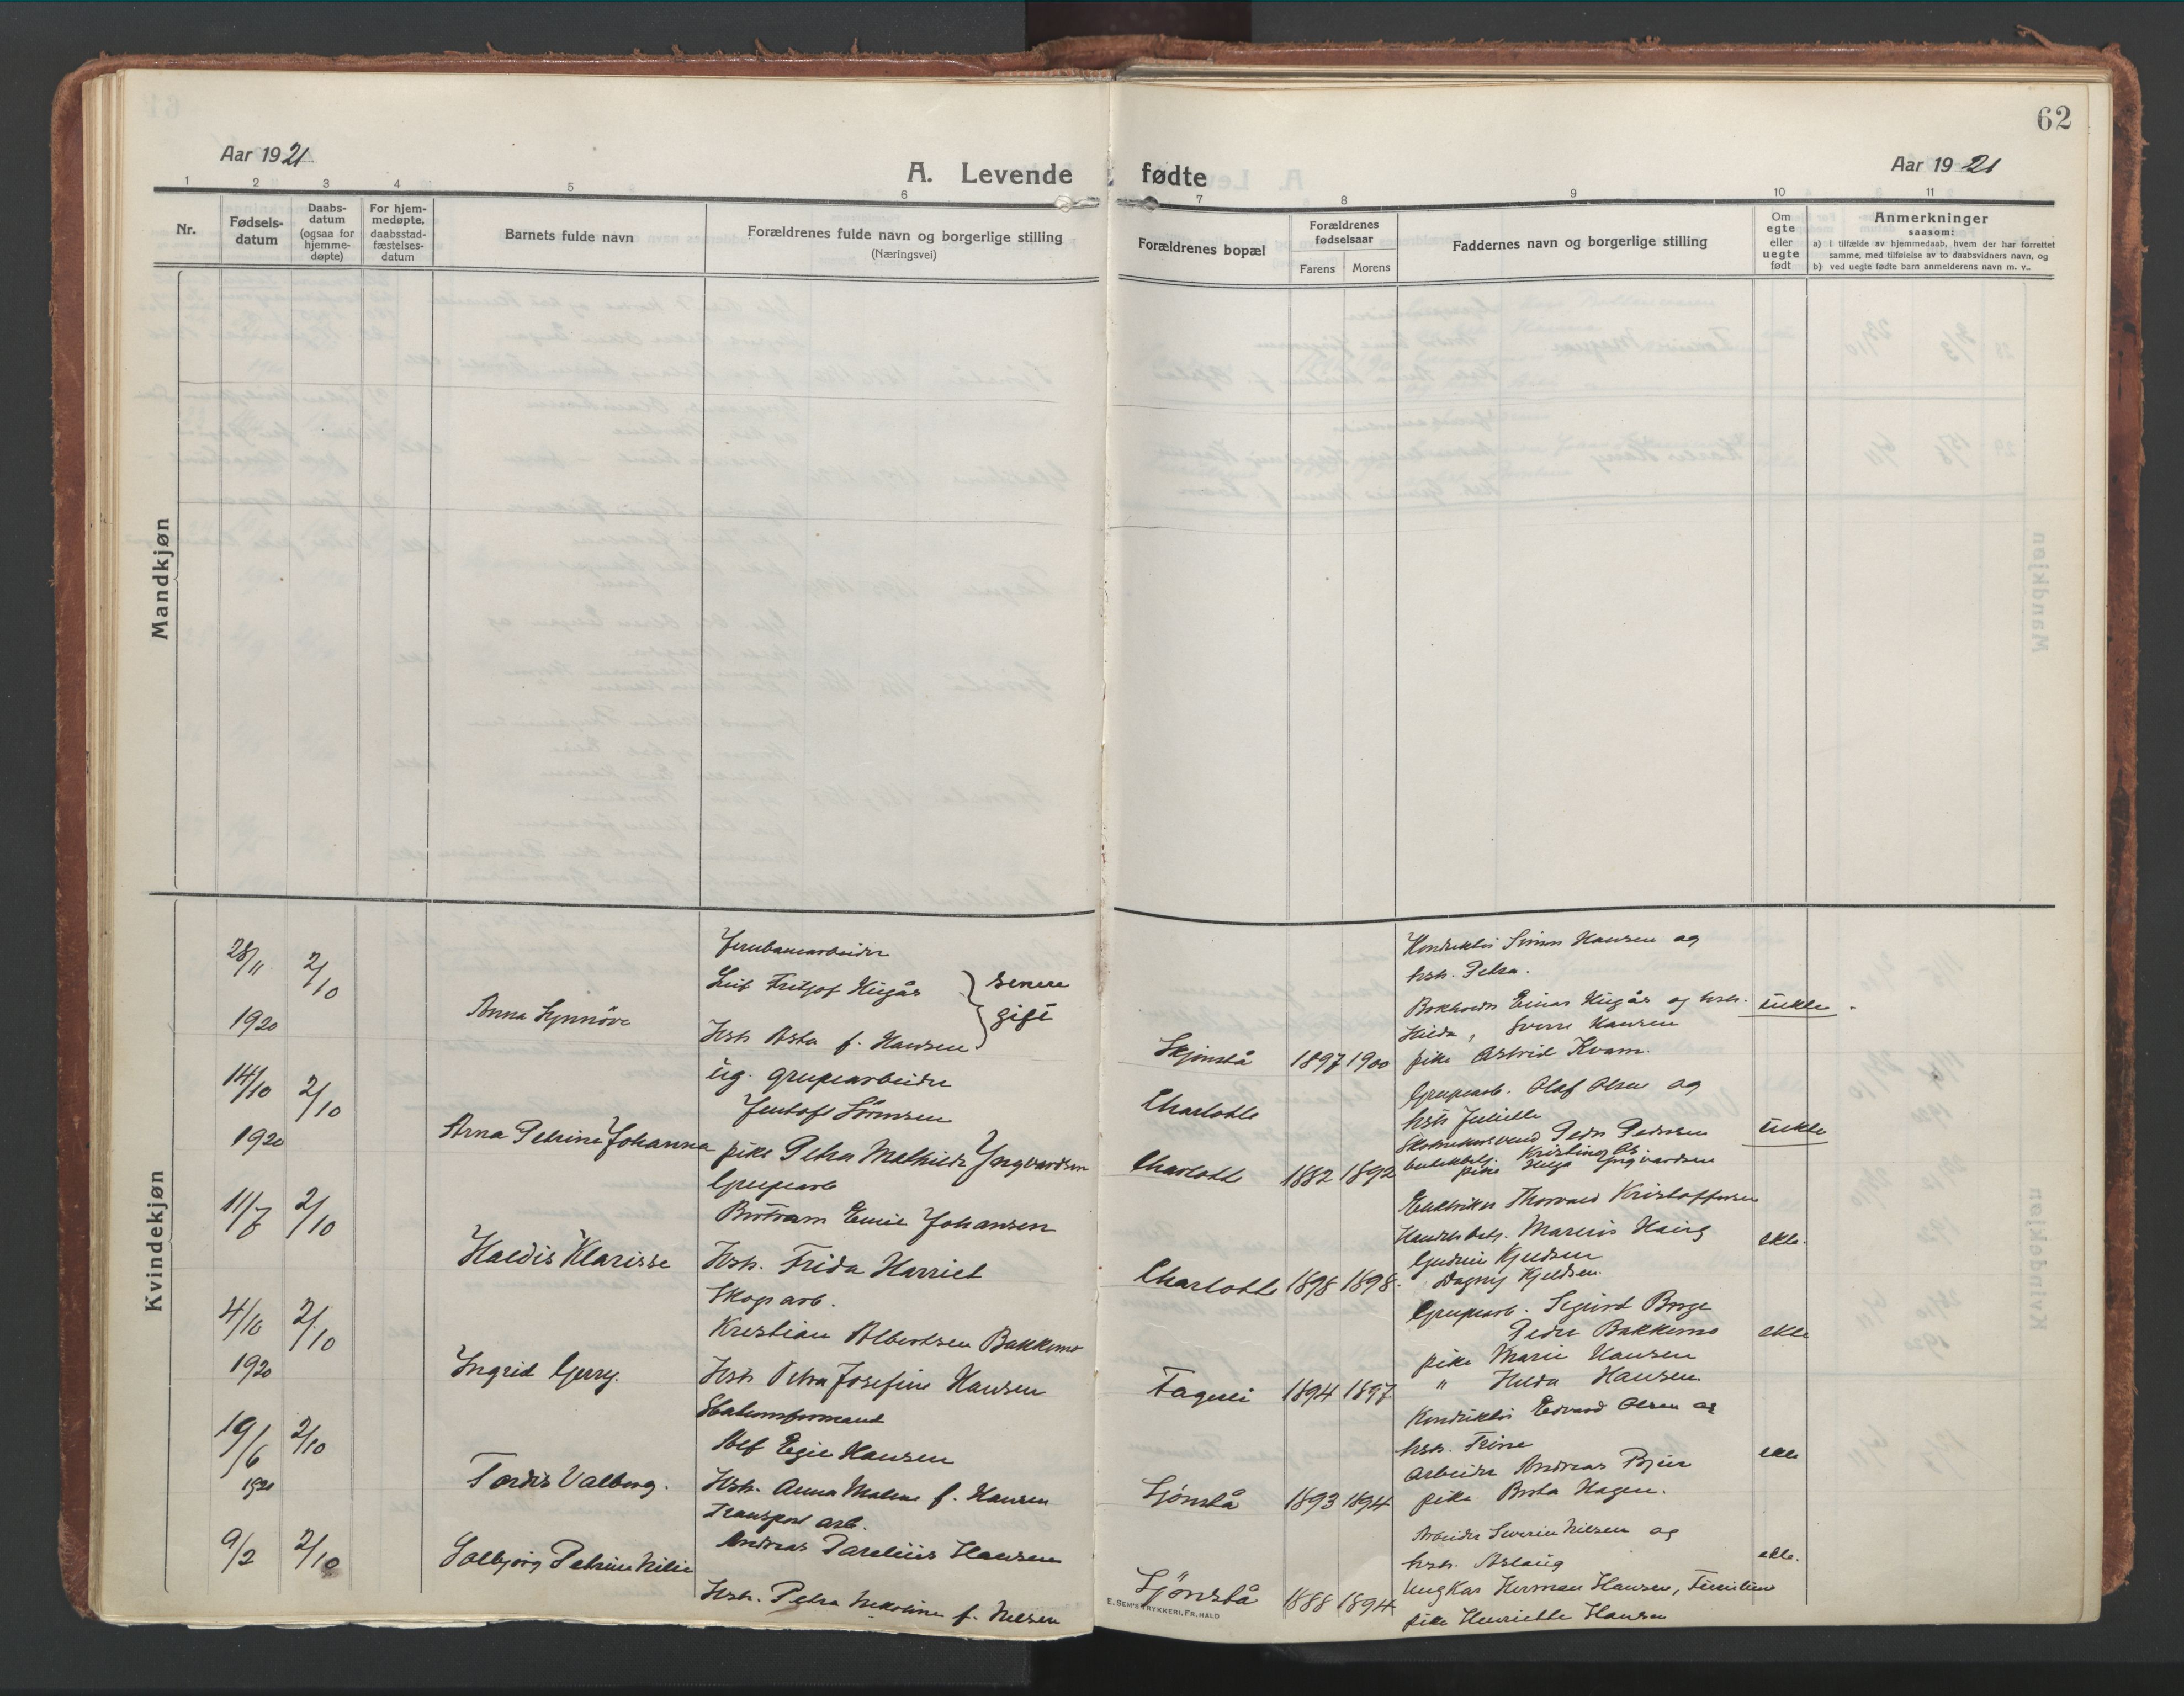 62
Aar 1921
A. Levende fødte
Aar 1921
1 2 3 4 5 6 7 8 9 10 11
Nr.
Fødsels-
datum
Daabs-
datum
(ogsaa for
hjemme-
døpte)
For hjem-
medøpte,
daabsstad-
fæstelses-
datum
Barnets fulde navn
Forældrenes fulde navn og borgerlige stilling
(Næringsvei)
Forældrenes bopæl
Forældrenes
fødselsaar
Farens Morens
Faddernes navn og borgerlige stilling
Om
egte
eller
uegte
født
Anmerkninger
saasom:
a) i tilfælde av hjemmedaab, hvem der har forrettet
samme, med tilføielse av to daabsvidners navn, og
b) ved uegte fødte barn anmelderens navn m. v..
Mandkjøn
Kvindekjøn
28/11 2/10
1920
Anna Synnöve
Jernbanearbeider
Leif Fritjof
Hstr Asta f. Hansen
senere
gift
Skjönstå 1897 1900
Konduktör Simon Hansen og
hstr. Petra.
Bokholder Einar og hstr.
Hilda, Sverre Hansen
pike Astrid Kvam.
uekte
14/10 2/10
1920
Arna Petrine Johanna
ug. grubearbeider
Jentoft Sörensen
pike Petra Mathilde Yngvardsen
Charlotte
Charlotte 1882 1892
Grubearb. Olaf Olsen og
hstr Juliette
Peder Pedersen
pike Helga Yngvardsen
uekte
11/7 2/10
Haldis Klarisse
Grubearb
Bertram Emil Johansen
Hstr. Frida Harriet
Charlotte 1898 1898.
Elektriker Thorvald Kristoffersen
Handelsbetj. Marius Haug
Gudrun Kjeldsen
Dagny Kjeldsen.
ekte.
4/10 2/10
1920
Ingrid Gerry.
Skogsarb.
Kristian Albertsen Bakkemo
Hstr Petra Josefine Hansen
Fagerli 1894 1897
Grubearb. Sigurd Borge
Peder Bakkemo
pike Marie Hansen
" Hilda Hansen
ekte
19/6 2/10
1920
Tordis Valborg.
Stationsformand
Alf Egil Hansen
Hstr. Anna Malene f. Hansen
Sjönstå 1893 1894
Konduktör Edvard Olsen og
hstr. Trine
Arbeider Andreas
pike Berta Hagen.
ekte
9/2 2/10
Solbjörg Petrine
Transport arb.
Andreas Parelius Hansen
Hstr. Petra Nikoline f. Nilsen
Sjönstå 1888 1894
Arbeider Severin Nilsen og
hstr. Aslaug
Ungkar Herman Hansen,
pike Henriette Hansen
ekte.
E. SEM'S TRYKKERI, FR.HALD